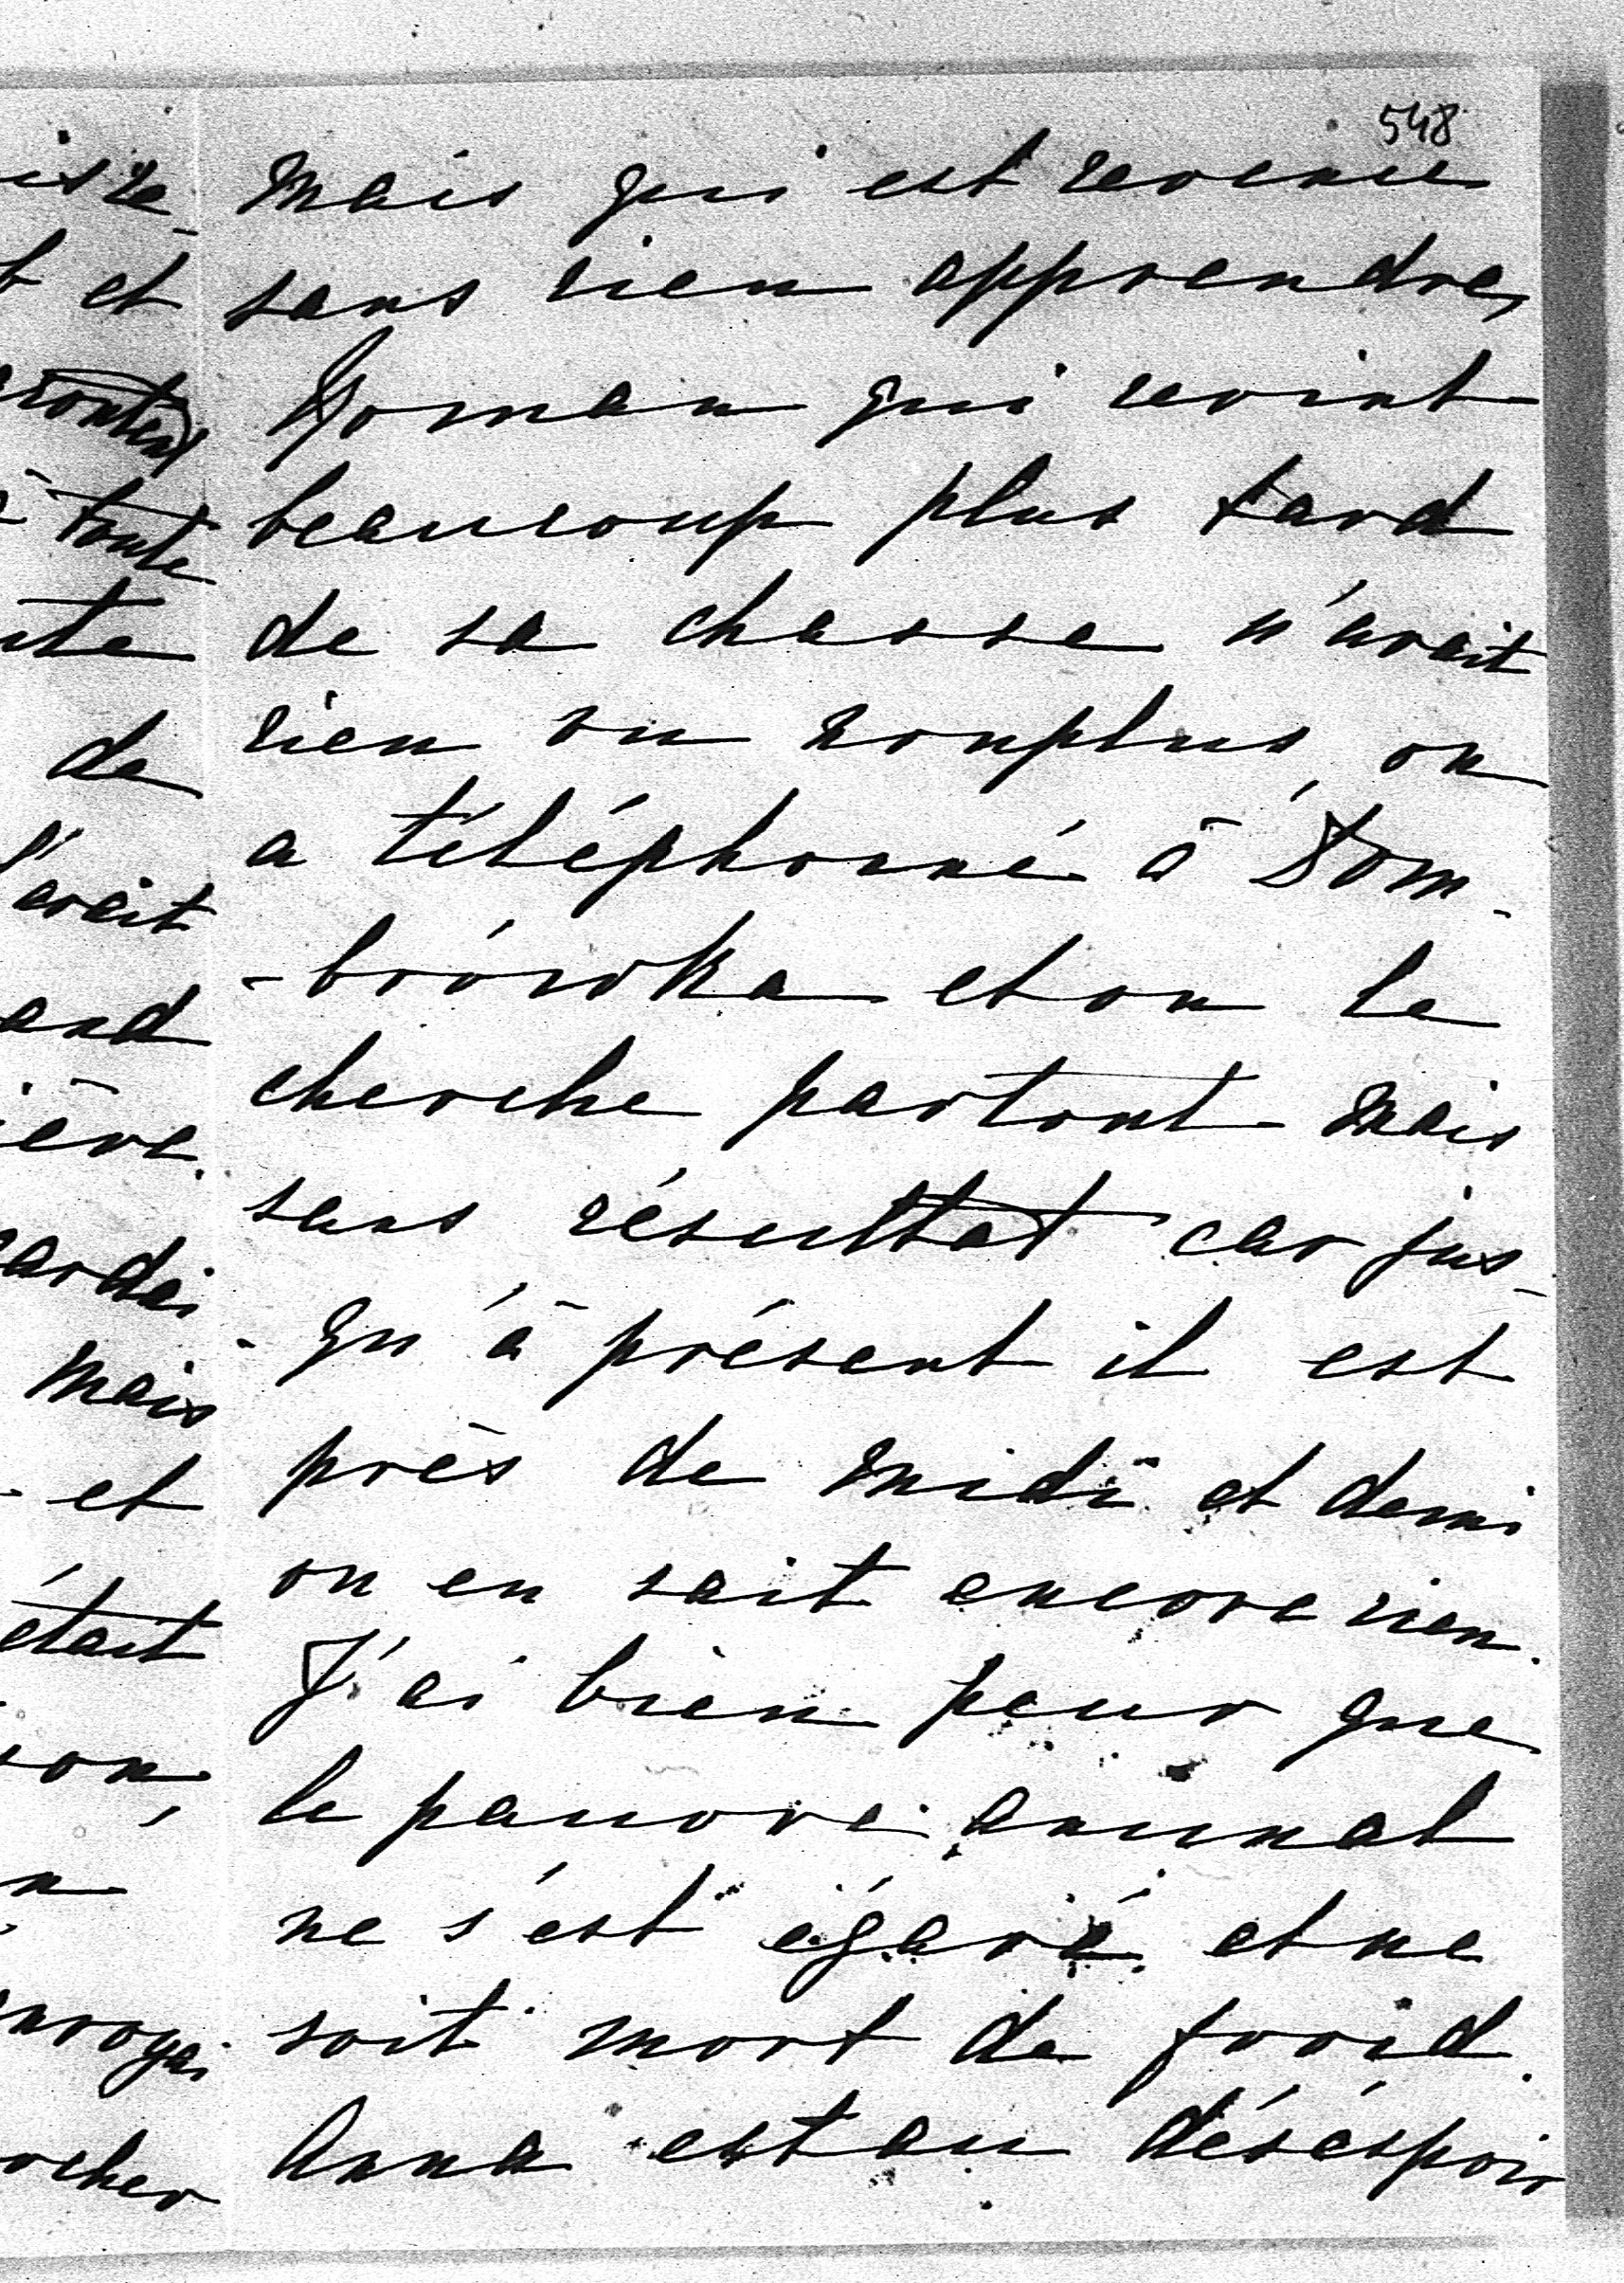 548
mais qui est revenue
sans rien apprendre,
Roman qui revint
beaucoup plus tard
de sa chasse n'avait
rien vu nonplus, on
a téléphoné à Dom-
-brówka et on le
cherche partout mais
sans résultat car jus-
-qu'à présent il est
près de midi et demi
on en sait encore rien.
J'ai bien peur que
le pauvre animal
ne s'est égaré et ne
soit mort de froid.
Anna est au déséspoir
et
toute
de
avait
mais
et
était